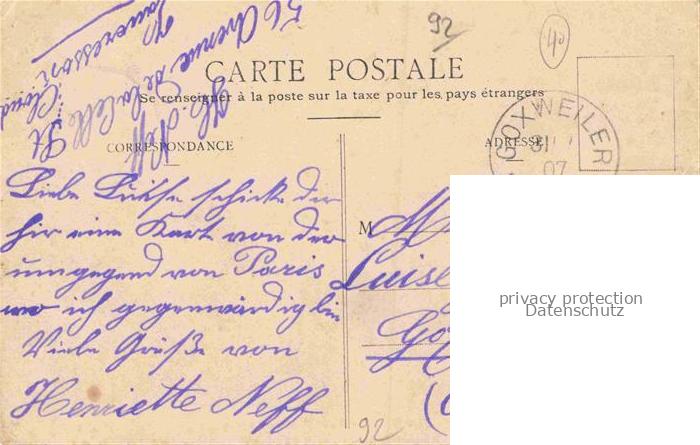 56 Avenue De la Celle St Cloud
Vaucresson
Neff
92
40
CARTE POSTALE
Se renseigner à la poste sur la taxe pour les pays étrangers
CORRESPONDANCE
ADRESSE
GOXWEILER
31
07
Liebe Luise schicke dir
hir eine Kart von der
umgegend von Paris
wo ich gegenwärdig bin
Viele Grüße von
Henriette Neff
M
Luise
Gox
92
privacy protection
Datenschutz